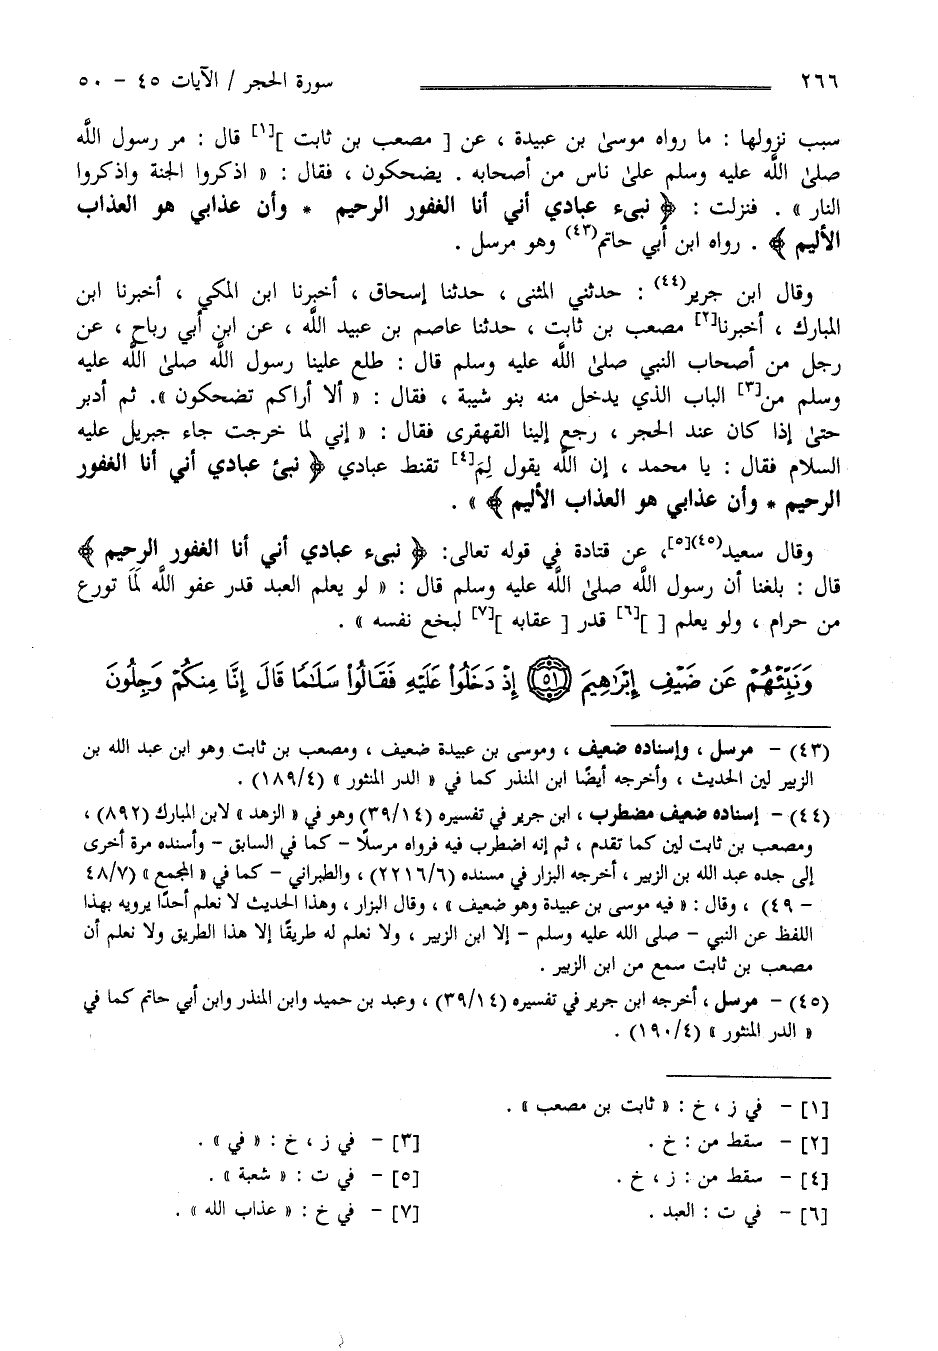 ٢٦٦
سورة الحجر / الآيات ٤٥ - ٥٠
سبب نزولها : ما رواه موسىٰ بن عبيدة ، عن [ مصعب بن ثابت ][١] قال : مر رسول اللَّه
صلىٰ اللَّه عليه وسلم علىٰ ناس من أصحابه . يضحكون ، فقال : « اذكروا الجنة واذكروا
النار » . فنزلت : ﴿ نبىء عبادي أني أنا الغفور الرحيم * وأن عذابي هو العذاب
الأليم ﴾ . رواه ابن أبي حاتم(٤٣) وهو مرسل .
وقال ابن جرير(٤٤) : حدثني المثنى ، حدثنا إسحاق ، أخبرنا ابن المكي ، أخبرنا ابن
المبارك ، أخبرنا[٢] مصعب بن ثابت ، حدثنا عاصم بن عبيد اللَّه ، عن ابن أبي رباح ، عن
رجل من أصحاب النبي صلىٰ اللَّه عليه وسلم قال : طلع علينا رسول اللَّه صلىٰ اللَّه عليه
وسلم من[٣] الباب الذي يدخل منه بنو شيبة ، فقال : « ألا أراكم تضحكون ». ثم أدبر
حتىٰ إذا كان عند الحجر ، رجع إلينا القهقرى فقال : « إني لما خرجت جاء جبريل عليه
السلام فقال : يا محمد ، إن اللَّه يقول لِمَ[٤] تقنط عبادي ﴿ نبئ عبادي أني أنا الغفور
الرحيم * وأن عذابي هو العذاب الأليم ﴾ » .
وقال سعيد(٤٥)[٥]، عن قتادة في قوله تعالى: ﴿ نبىء عبادي أني أنا الغفور الرحيم ﴾
قال : بلغنا أن رسول اللَّه صلىٰ اللَّه عليه وسلم قال : « لو يعلم العبد قدر عفو اللَّه لَمَا تورع
من حرام ، ولو يعلم [ ][٦] قدر [ عقابه ][٧] لبخع نفسه » .
وَنَبِّئْهُمْ عَن ضَيْفِ إِبْرَٰهِيمَ ٥١ إِذْ دَخَلُوا۟ عَلَيْهِ فَقَالُوا۟ سَلَٰمًا قَالَ إِنَّا مِنكُمْ وَجِلُونَ
(٤٣) - مرسل ، وإسناده ضعيف ، وموسى بن عبيدة ضعيف ، ومصعب بن ثابت وهو ابن عبد الله بن
الزبير لين الحديث ، وأخرجه أيضًا ابن المنذر كما في « الدر المنثور » (١٨٩/٤) .
(٤٤) - إسناده ضعيف مضطرب ، ابن جرير في تفسيره (٣٩/١٤) وهو في « الزهد » لابن المبارك (٨٩٢) ،
ومصعب بن ثابت لين كما تقدم ، ثم إنه اضطرب فيه فرواه مرسلًا - كما في السابق - وأسنده مرة أخرى
إلى جده عبد الله بن الزبير ، أخرجه البزار في مسنده (٢٢١٦/٦) ، والطبراني - كما في « المجمع » (٤٨/٧
- ٤٩) ، وقال : « فيه موسى بن عبيدة وهو ضعيف » ، وقال البزار ، وهذا الحديث لا نعلم أحدًا يرويه بهذا
اللفظ عن النبي - صلى الله عليه وسلم - إلا ابن الزبير ، ولا نعلم له طريقًا إلا هذا الطريق ولا نعلم أن
مصعب بن ثابت سمع من ابن الزبير .
(٤٥) - مرسل ، أخرجه ابن جرير في تفسيره (٣٩/١٤) ، وعبد بن حميد وابن المنذر وابن أبي حاتم كما في
« الدر المنثور » (١٩٠/٤) .
[١] - في ز ، خ : « ثابت بن مصعب » .
[٢] - سقط من : خ .
[٣] - في ز ، خ : « في » .
[٤] - سقط من : ز ، خ .
[٥] - في ت : « شعبة » .
[٦] - في ت : العبد .
[٧] - في خ : « عذاب الله » .